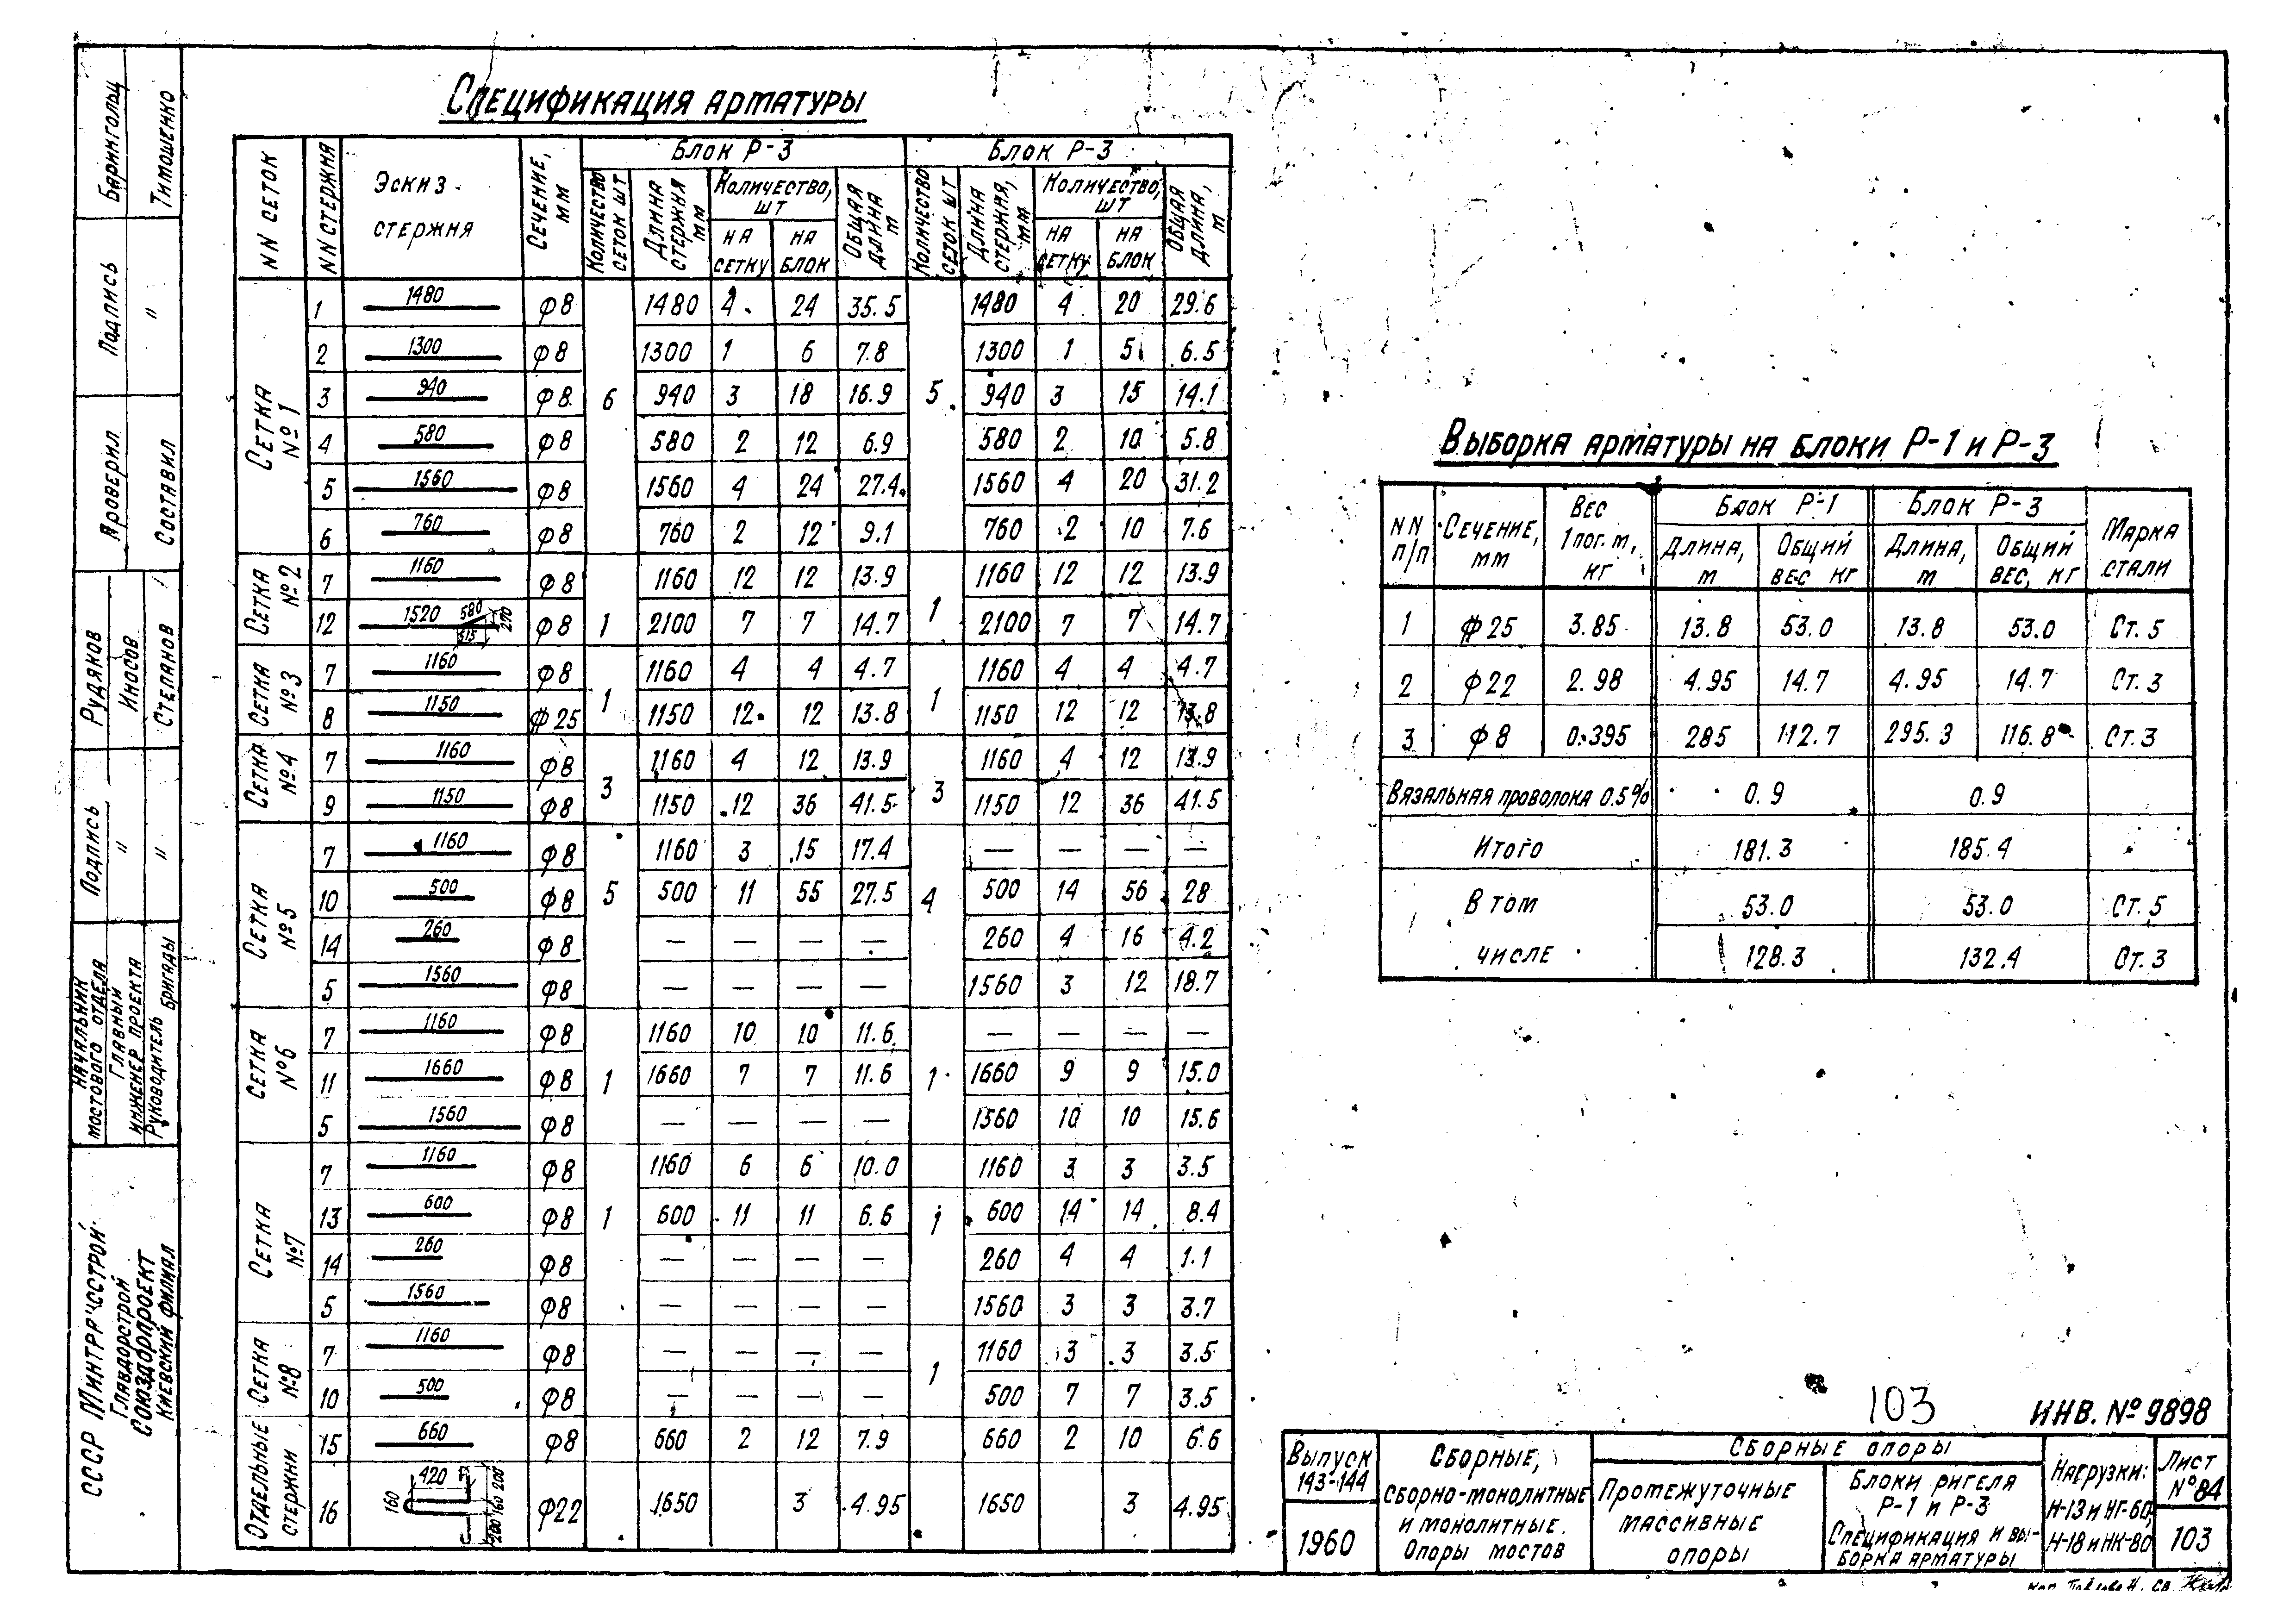 Спецификация арматуры
NN сеток | NN стержня | Эскиз стержня | Сечение, мм | Блок Р-3 | Блок Р-3
Количество сеток шт | Длина стержня мм | Количество, шт | Общая длина м | Количество сеток шт | Длина стержня, мм | Количество, шт | Общая длина, м
на сетку | на блок | на сетку | на блок
Сетка №1
1 1480 ф8 1480 4 24 35.5 1480 4 20 29.6
2 1300 ф8 1300 1 6 7.8 1300 1 5 6.5
3 940 ф8 6 940 3 18 16.9 5 940 3 15 14.1
4 580 ф8 580 2 12 6.9 580 2 10 5.8
5 1560 ф8 1560 4 24 27.4 1560 4 20 31.2
6 760 ф8 760 2 12 9.1 760 2 10 7.6
Сетка №2
7 1160 ф8 1160 12 12 13.9 1160 12 12 13.9
12 1520 580 515 270 ф8 1 2100 7 7 14.7 1 2100 7 7 14.7
Сетка №3
7 1160 ф8 1160 4 4 4.7 1160 4 4 4.7
8 1150 ф25 1 1150 12 12 13.8 1 1150 12 12 13.8
Сетка №4
7 1160 ф8 1160 4 12 13.9 1160 4 12 13.9
9 1150 ф8 3 1150 12 36 41.5 3 1150 12 36 41.5
Сетка №5
7 1160 ф8 1160 3 15 17.4 — — — —
10 500 ф8 5 500 11 55 27.5 4 500 14 56 28
14 260 ф8 — — — — 260 4 16 4.2
5 1560 ф8 — — — — 1560 3 12 18.7
Сетка №6
7 1160 ф8 1160 10 10 11.6 — — — —
11 1660 ф8 1 1660 7 7 11.6 1 1660 9 9 15.0
5 1560 ф8 — — — — 1560 10 10 15.6
Сетка №7
7 1160 ф8 1160 6 6 10.0 1160 3 3 3.5
13 600 ф8 1 600 11 11 6.6 1 600 14 14 8.4
14 260 ф8 — — — — 260 4 4 1.1
5 1560 ф8 — — — — 1560 3 3 3.7
Сетка №8
7 1160 ф8 — — — — 1160 3 3 3.5
10 500 ф8 — — — — 1 500 7 7 3.5
Отдельные стержни
15 660 ф8 660 2 12 7.9 660 2 10 6.6
16 420 160 200 160 200 ф22 1650 3 4.95 1650 3 4.95
Выборка арматуры на блоки Р-1 и Р-3
NN п/п | Сечение, мм | Вес 1 пог. м, кг | Блок Р-1 | Блок Р-3 | Марка стали
Длина, м | Общий вес кг | Длина, м | Общий вес, кг
1 ф25 3.85 13.8 53.0 13.8 53.0 Ст.5
2 ф22 2.98 4.95 14.7 4.95 14.7 Ст.3
3 ф8 0.395 285 112.7 295.3 116.8 Ст.3
Вязальная проволока 0.5% 0.9 0.9
Итого 181.3 185.4
В том 53.0 53.0 Ст.5
числе 128.3 132.4 Ст.3
103
ИНВ. № 9898
Выпуск 143-144
1960
Сборные,
сборно-монолитные
и монолитные
опоры мостов
Сборные опоры
Промежуточные
массивные
опоры
Блоки ригеля
Р-1 и Р-3
Спецификация и вы-
борка арматуры
Нагрузки:
Н-13 и НГ-60,
Н-18 и НК-80
Лист
№ 84
103
СССР Минтрансстрой
Главдорстрой
Союздорпроект
Киевский филиал
Начальник
мостового отдела
Главный
инженер проекта
Руководитель бригады
Подпись
"
"
Рудяков
Иносов
Степанов
Проверил
Составил
Подпись
"
Барингольц
Тимошенко